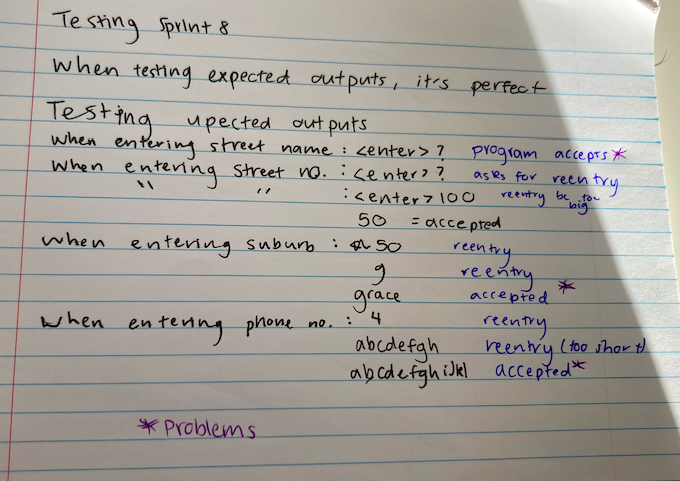 Testing Sprint 8
When testing expected outputs, it's perfect
Testing upected outputs
when entering street name : <enter> ? program accepts *
When entering street no. : <enter> ? asks for reentry
" " : <enter> 100 reentry bc too big
50 = accepted
when entering suburb : 50 reentry
g reentry
grace accepted *
when entering phone no. : 4 reentry
abcdefgh reentry (too short)
abcdefghijkl accepted *
* Problems